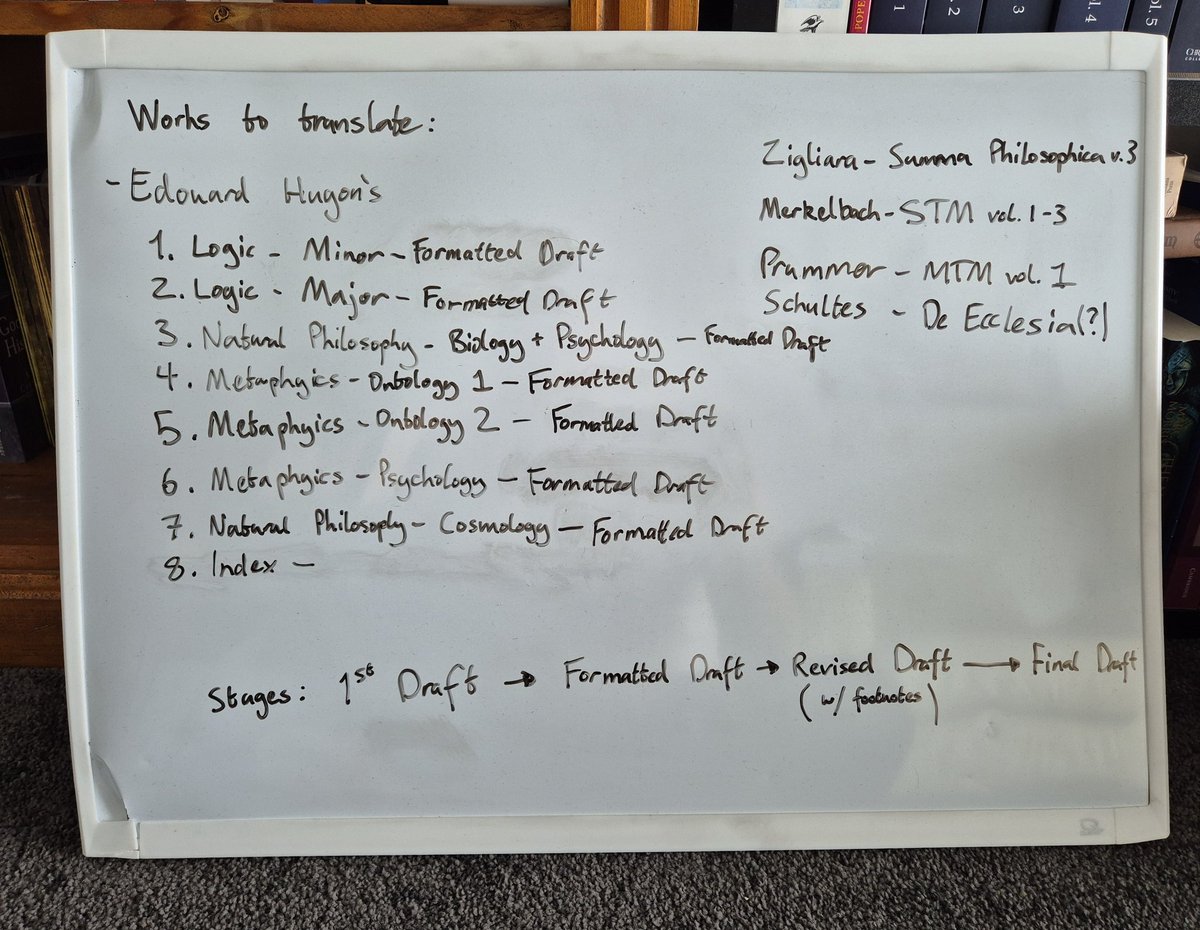 Works to translate:
- Edouard Hugon's
1. Logic - Minor - Formatted Draft
2. Logic - Major - Formatted Draft
3. Natural Philosophy - Biology + Psychology - Formatted Draft
4. Metaphyics - Ontology 1 - Formatted Draft
5. Metaphyics - Ontology 2 - Formatted Draft
6. Metaphyics - Psychology - Formatted Draft
7. Natural Philosophy - Cosmology - Formatted Draft
8. Index -
Zigliara - Summa Philosophica v.3
Merkelbach - STM vol. 1-3
Prummer - MTM vol. 1
Schultes - De Ecclesia(?)
Stages: 1st Draft → Formatted Draft → Revised Draft → Final Draft
(w/ footnotes)
POPE
1
2
3
l. 4
ol. 5